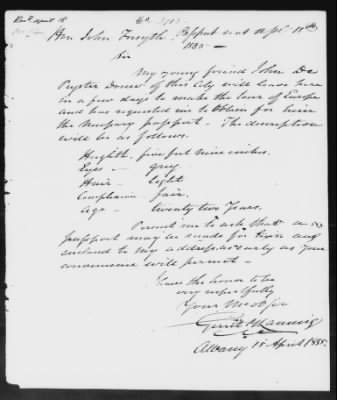 Rec'd April 18
No 3105
Hon John Forsyth Passport sent Apr 18th
1835
Sir
My young friend John De
Peyster Douw of this City will leave here
in a few days to make the tour of Europe
and has requested me to obtain for him
the necessary passport - The description
will be as follows.
Heighth five feet nine inches.
Eyes - grey
Hair - light
Complexion - fair.
Age - twenty two Years.
Permit me to ask that a
passport may be made for him and
enclosed to my address as early as your
convenience will permit -
I have the honor to be
very respectfully
Your Mo ob sr
Gerrit Y Lansing
Albany 15 April 1835.